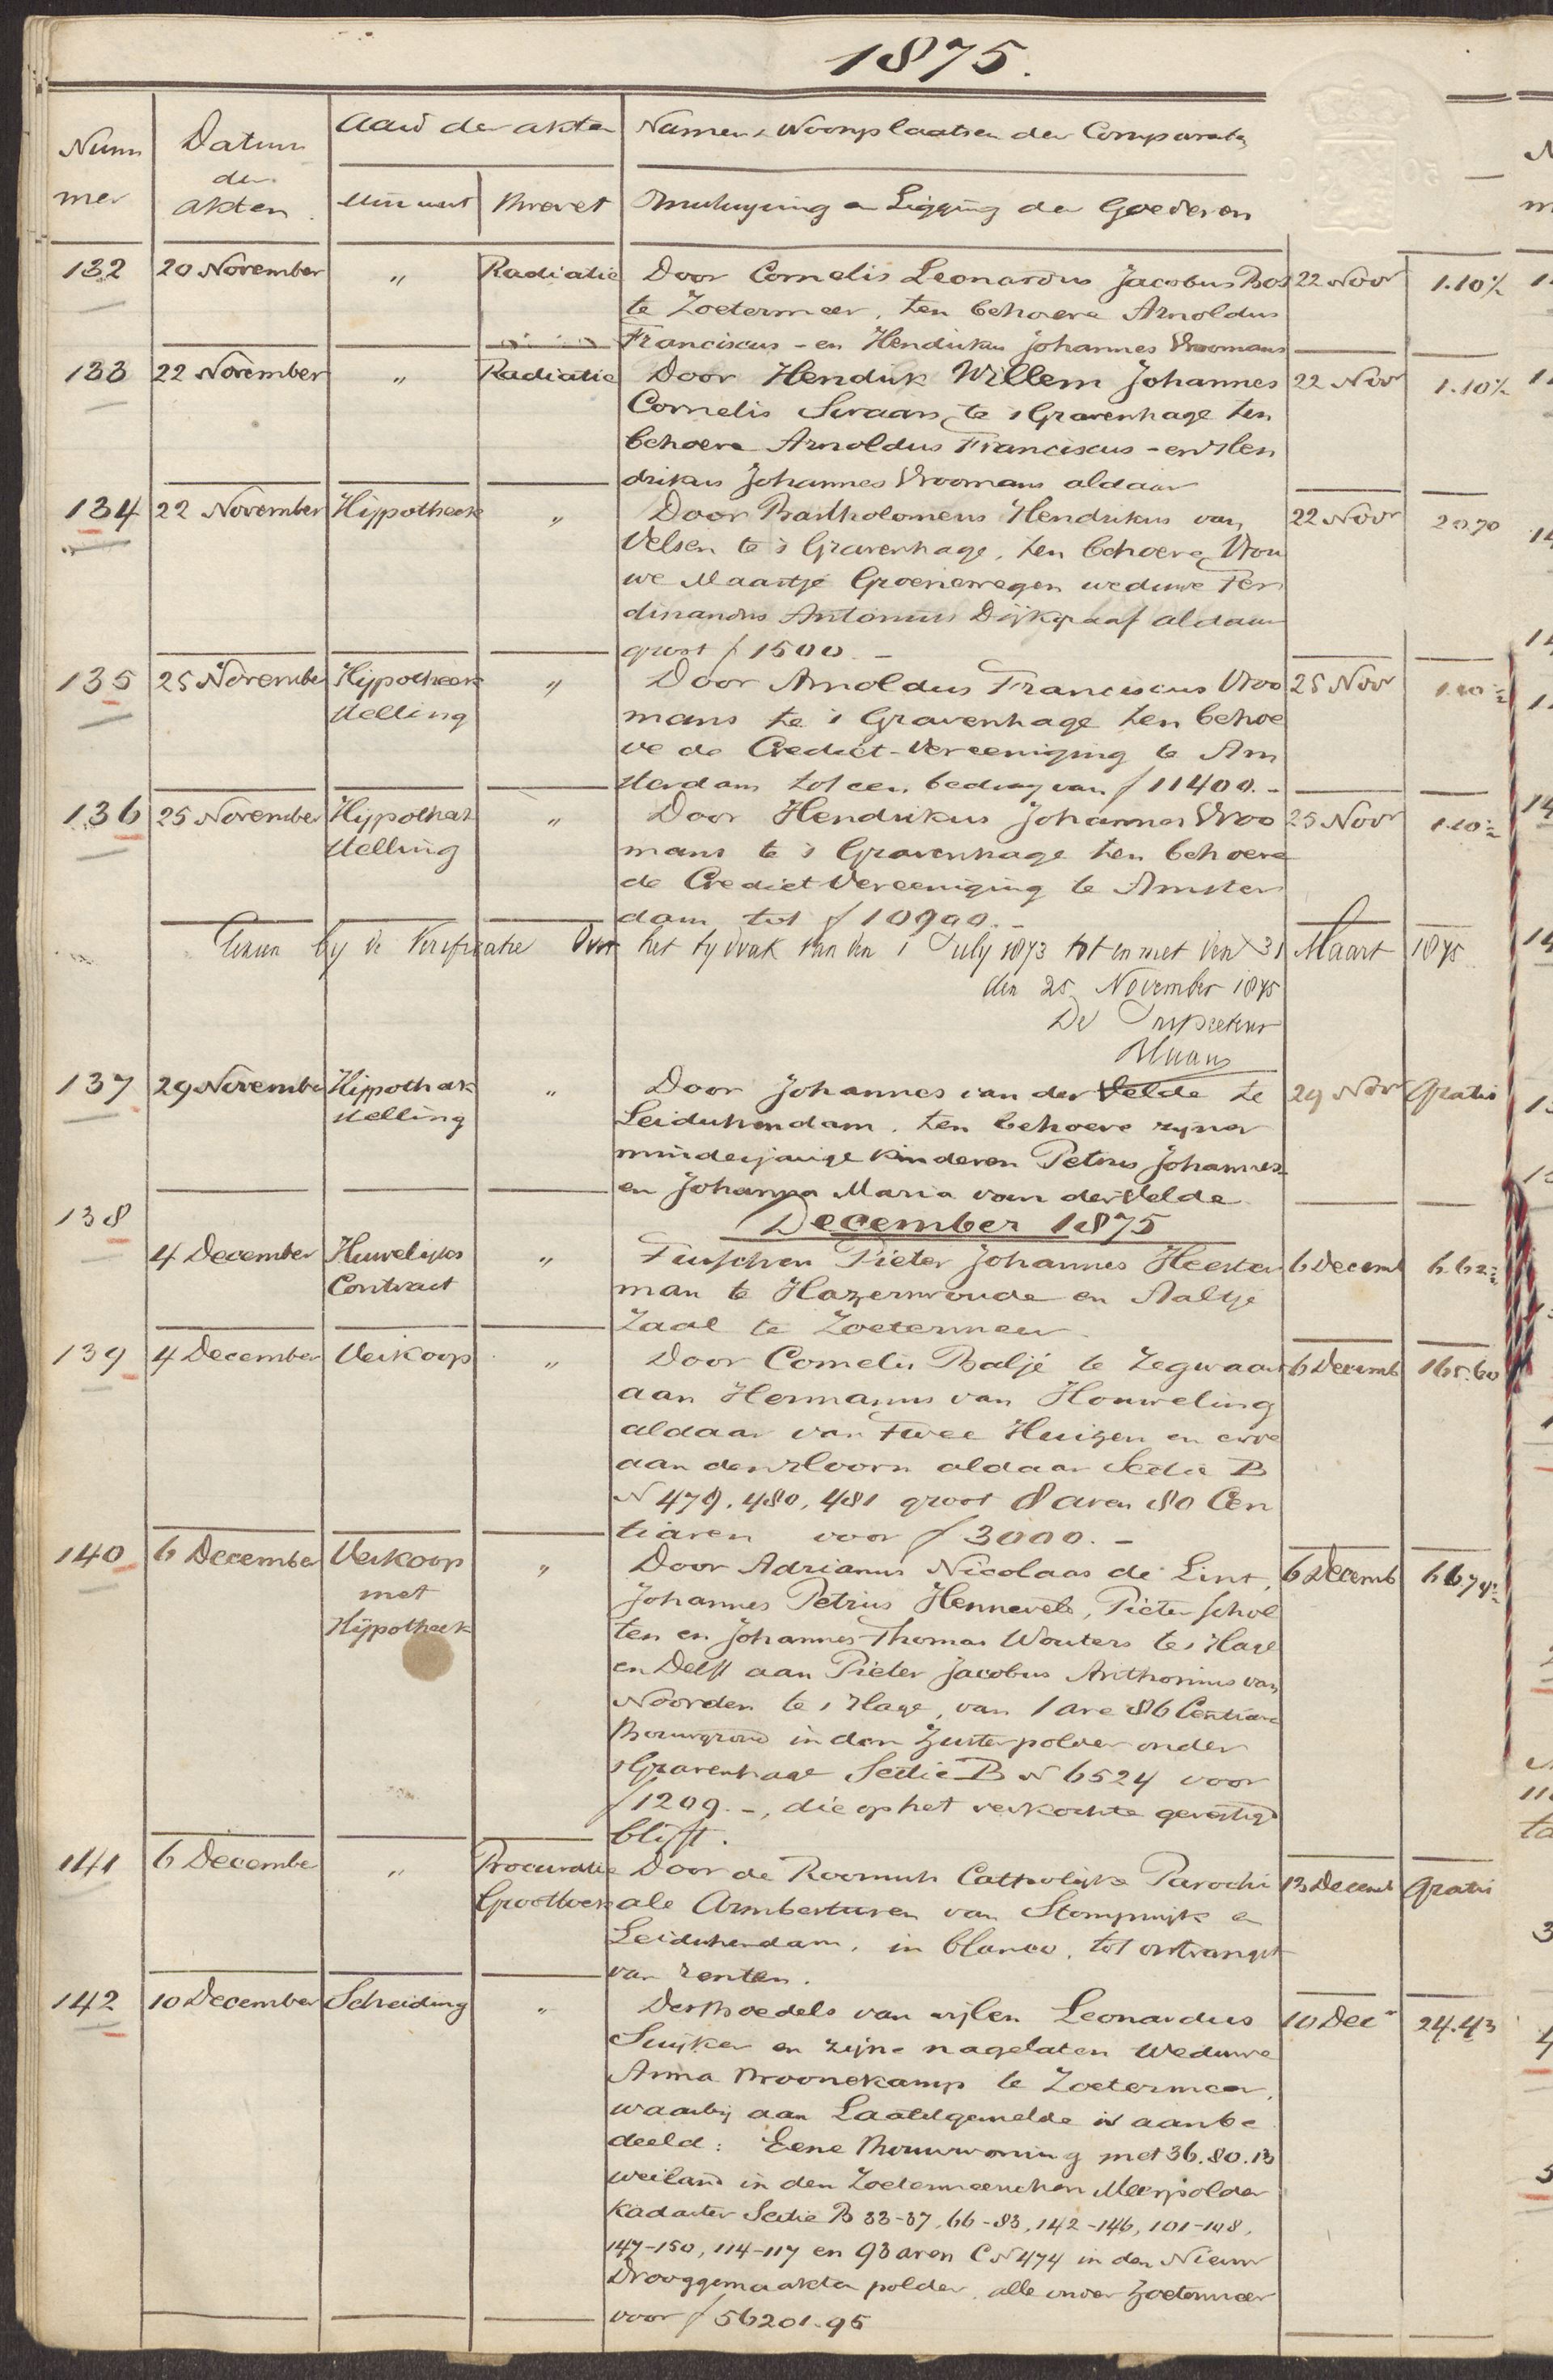 1875.
Aard der akten Namen & Woonplaatsen der Comparaten
Num Datum
mer der akten. Minuut Brevet Omschryving en Ligging der Goederen
132 20 November " Radiatie Door Cornelis Leonardus Jacobus Bos 22 Novr 1.10½
te Zoetermeer, ten behoeve Arnoldus
Franciscus - en Hendrikus Johannes Vroomans
133 22 November " Radiatie Door Hendrik Willem Johannes 22 Novr 1.10½
Cornelis Swaans te s Gravenhage ten
behoeve Arnoldus Franciscus - en Hen
drikus Johannes Vroomans aldaar
134 22 November Hijpotheek " Door Bartholomeus Hendrikus van 22 Novr 20.70
Velsen te s Gravenhage, ten behoeve Vrou
we Maartje Groenewegen weduwe Fer
dinandus Antonius Dijkgraaf aldaar
groot f 1500.-
135 25 November Hijpotheek " Door Arnoldus Franciscus Vroo 25 Novr 1.10½
stelling mans te s Gravenhage ten behoe
ve de Crediet-Vereeniging te Am
sterdam tot een bedrag van f 11400.-
136 25 November Hijpothek " Door Hendrikus Johannes Vroo 25 Novr 1.10½
stelling mans te s Gravenhage ten behoeve
de Crediet Vereeniging te Amster
dam tot f 10900.-
Gezien by de Verificatie over het tydvak van den 1 July 1873 tot en met den 31 Maart 1875
den 25 November 1875
De Inspecteur
137 29 November Hijpothek " Door Johannes van der Velde te 29 Novr Gratis
stelling Leidschendam, ten behoeve zyner
minderjarige kinderen Petrus Johannes
en Johanna Maria van der Velde
138 December 1875
4 December Huwelijks " Tusschen Pieter Johannes Heester 6 Decemb 6.62½
Contract man te Hazerswoude en Aaltje
Zaal te Zoetermeer.
139 4 December Verkoop " Door Cornelis Baljé te Zegwaart 6 Decemb 165.60
aan Hermanus van Houweling
aldaar van twee Huizen en erve
aan den Hoorn aldaar Sectie B
N 479, 480, 481 groot 8 aren 80 Cen
tiaren voor f 3000.-
140 6 December Verkoop " Door Adrianus Nicolaas de Lint, 6 Decemb 66.74½
met Johannes Petrus Hennevelt, Pieter Schol
Hijpotheek ten en Johannes Thomas Wouters te s Hage
en Delft aan Pieter Jacobus Anthonius van
Noorden te s Hage, van 1 are 86 Centiare
Bouwgrond in den Zusterpolder onder
s Gravenhage Sectie B N 6524 voor
f 1209.-, die op het verkochte gevestigd
blijft.
141 6 December " Procuratie Door de Roomsch Catholijke Parochi 13 Decemb Gratis
Grootboek ale Armbesturen van Stompwijk en
Leidschendam, in blanco, tot ontvangst
van renten.
142 10 December Scheiding " Des Boedels van wijlen Leonardus 10 Decr 24.43
Suijker en zijne nagelaten Weduwe
Anna Broonekamp te Zoetermeer,
waarbij aan Laatstgemelde is aanbe
deeld: Eene Bouwwoning met 36.80.13
weiland in den Zoetermeerschen Meerpolder
Kadaster Sectie B 33-37, 66-83, 142-146, 101-108,
147-150, 114-117 en 93 aren C N 474 in den Nieuw
Drooggemaakten polder, alle onder Zoetermeer
voor f 56201.95